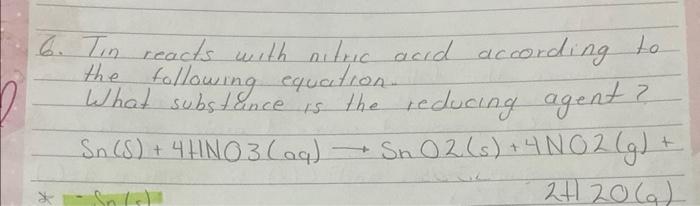 6. Tin reacts with nitric acid according to
the following equation.
What substance is the reducing agent?
Sn(s) + 4HNO3(aq) → SnO2(s) + 4NO2(g) +
2H2O(g)
* - Sn(s)